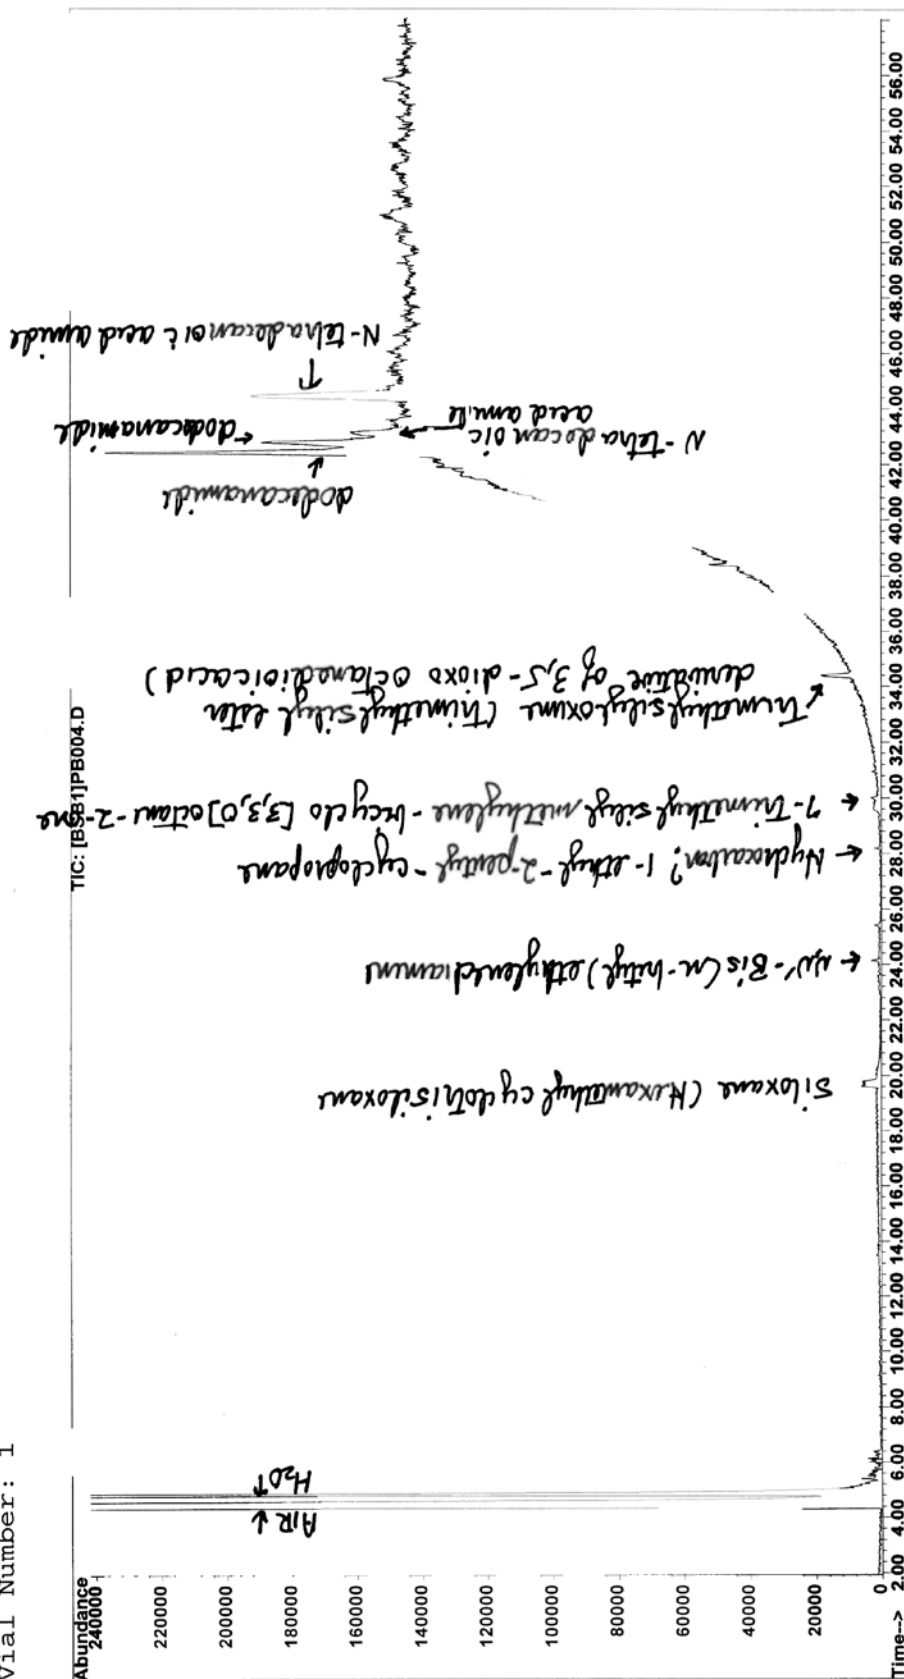 Vial Number: 1
Abundance
TIC: [BSB1]PB004.D
240000
220000
200000
180000
160000
140000
120000
100000
80000
60000
40000
20000
0
Time-->
2.00 4.00 6.00 8.00 10.00 12.00 14.00 16.00 18.00 20.00 22.00 24.00 26.00 28.00 30.00 32.00 34.00 36.00 38.00 40.00 42.00 44.00 46.00 48.00 50.00 52.00 54.00 56.00
AIR ↓
H2O↑
Siloxane (Hexamethyl cyclotrisiloxane
N,N'-Bis(n-butyl)ethylenediamine
Hydrocarbon? 1-ethyl-2-pentyl-cyclopropane
7-Trimethylsilyl methylene-bicyclo [3,3,0]octane-2-one
Trimethylsilyloxime (trimethylsilyl ester
derivative of 3,5-dioxo octanedioic acid)
dodecanamide
dodecanamide
N-tetradecanoic
acid amide
N-tetradecanoic acid amide